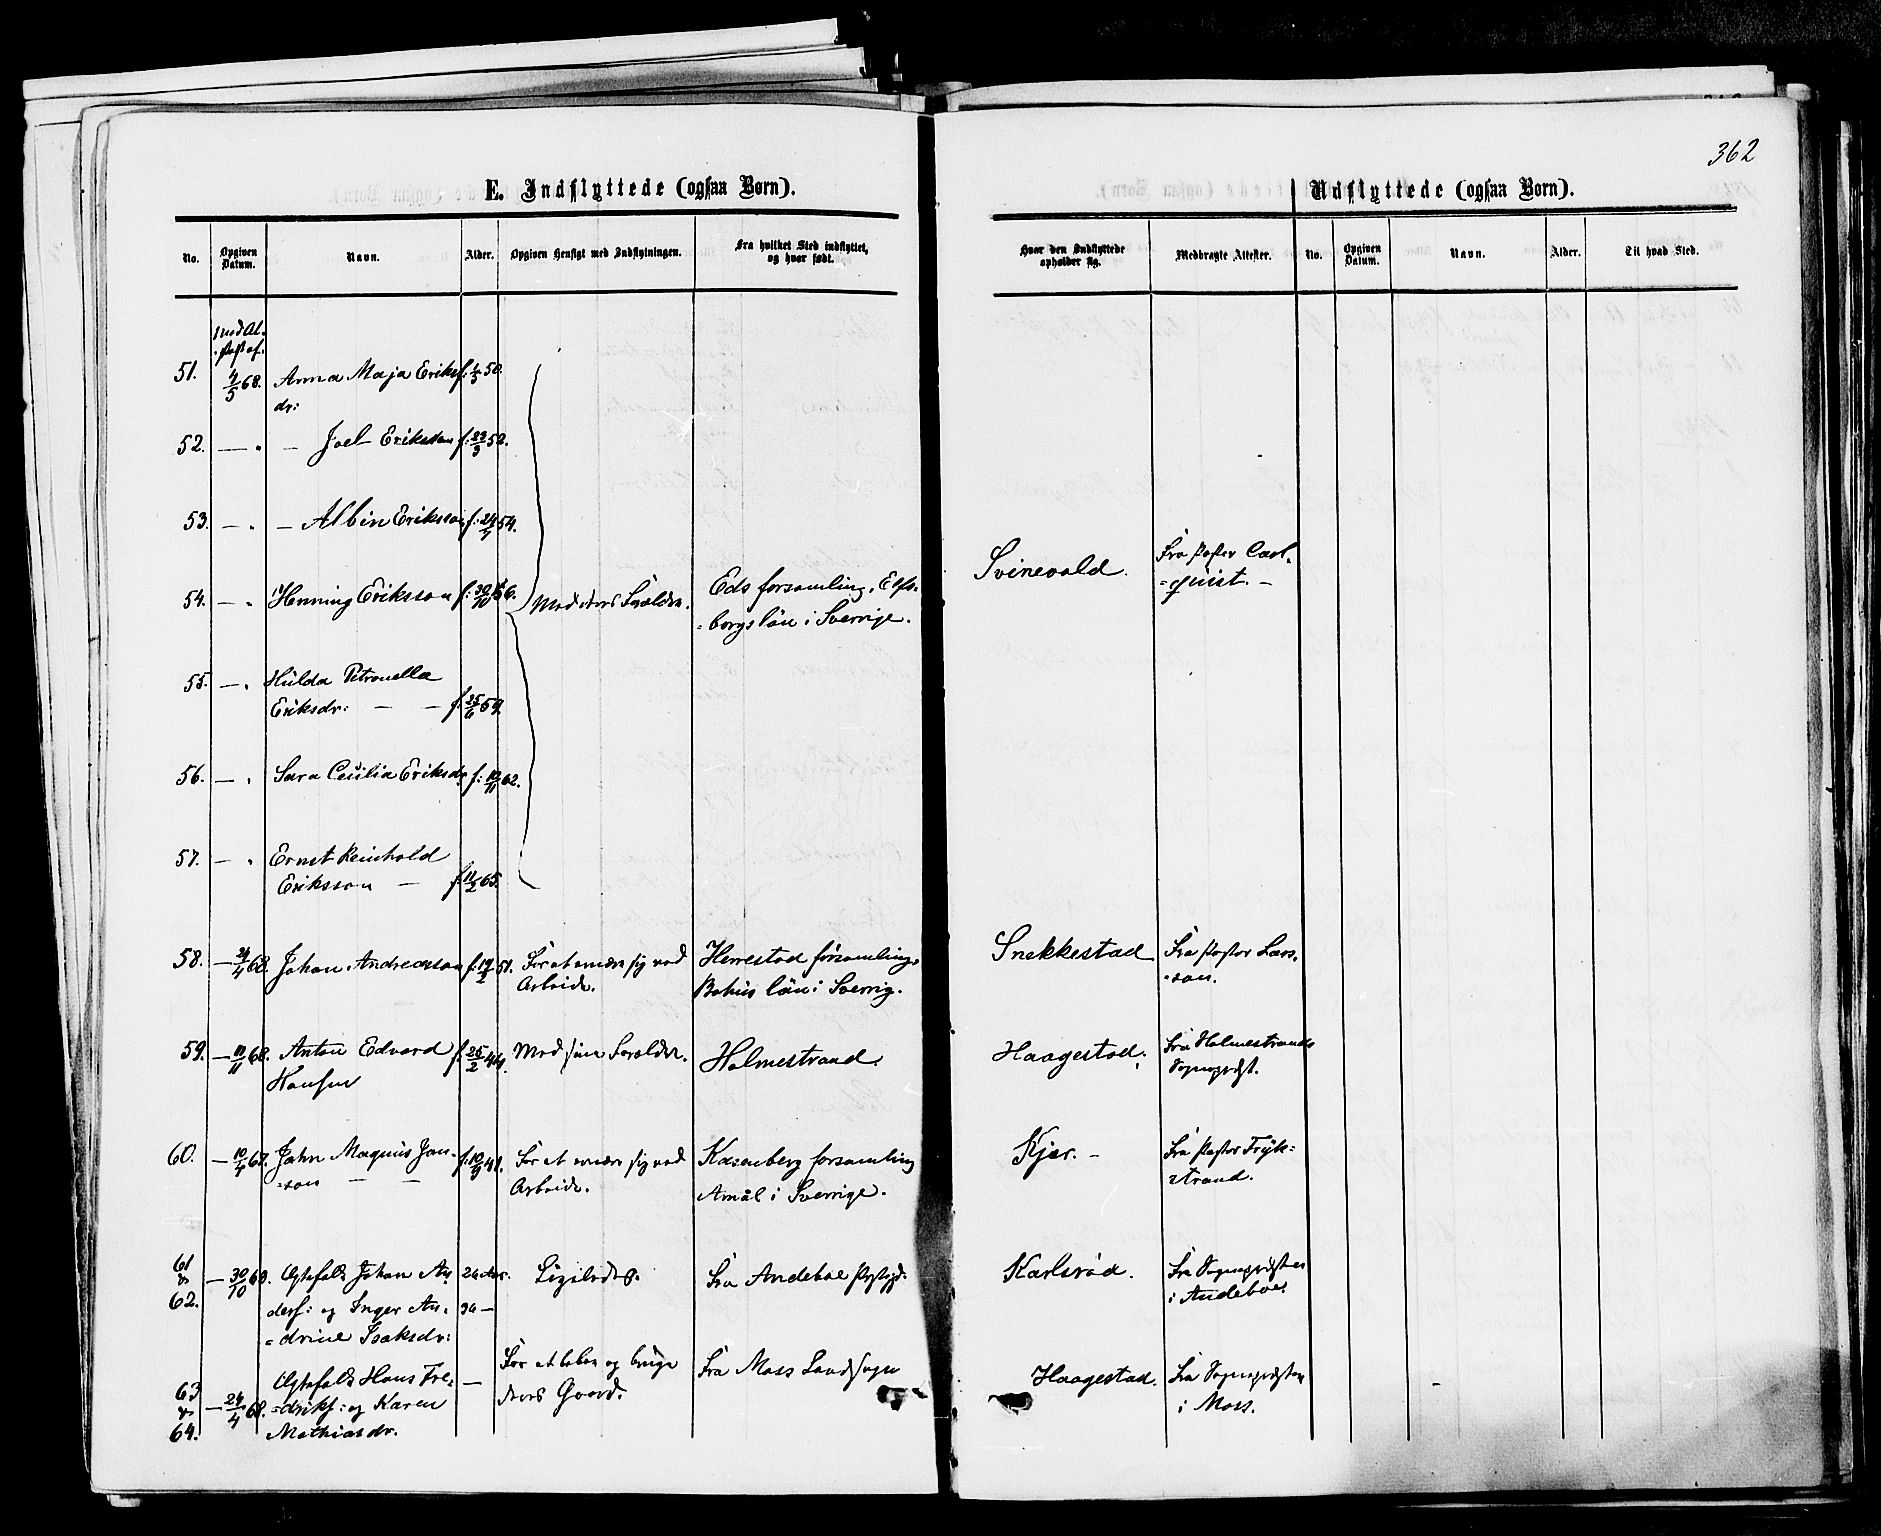 362
E. Indflyttede (ogsaa Børn).
Udflyttede (ogsaa Børn).
No.
Opgiven Datum.
Navn.
Alder.
Opgiven Hensigt med Indflytningen.
Fra hvilket Sted indflyttet, og hvor født.
Hvor den Indflyttede opholder sig.
Medbragte Attester.
No.
Opgiven Datum.
Navn.
Alder.
Til hvad Sted.
51. 4/5 68. Anna Maja Eriks f: 50.
dr:
52. — " — Joel Eriksson f: 29/3 52.
53. — " — Albin Eriksson f: 54.
54. — " Henning Eriksson f: 30/10 56. Med deres Forældre. Eds forsamling, Elfs- Svinevold. Fra Pastor Carl-
=borgs län i Sverrige. =quist. —
55. — " Hulda Petronella
Eriksdr: — — f: 25/6 59.
56. — " Sara Cecilia Eriksdr f: 12/11 62.
57. — " Ernst Reinhold
Eriksson — f: 11/2 65.
58. — 68. Johan Andreasson f: 51. For at ernære sig ved Herrestad forsamling, Snekkestad Fra Pastor Lars-
Arbeide. Bohus län i Sverrig. =son.
59. — 11/11 68. Anton Edvard f: 25/2 44. Med sine Forældre. Holmestrand. Haagestad. Fra Holmestrands
Hansen Sogneprest.
60. — 10/4 67. John Magnus Jan- f: 10/9 41. For at ernære sig ved Kasenberg forsamling Kjær. — Fra Pastor Fryk=
=son — — Arbeide. Amål i Sverrige. strand.
61
& — 30/10 68. Ægtefolk Johan An- 26 Aar. Ligeledes. Fra Andeboe Prstgjd. Karlsrød. Fra Sognepresten
62. dersf: og Inger An- 34 — i Andeboe.
=drine Isaksdr:
63
& — 24/4 68. Ægtefolk Hans Fre- — For at beboe og bruge Fra Moss Landsogn Haagestad. Fra Sognepresten
64. =driksf: og Karen deres Gaard. i Moss.
Mathiasdr.